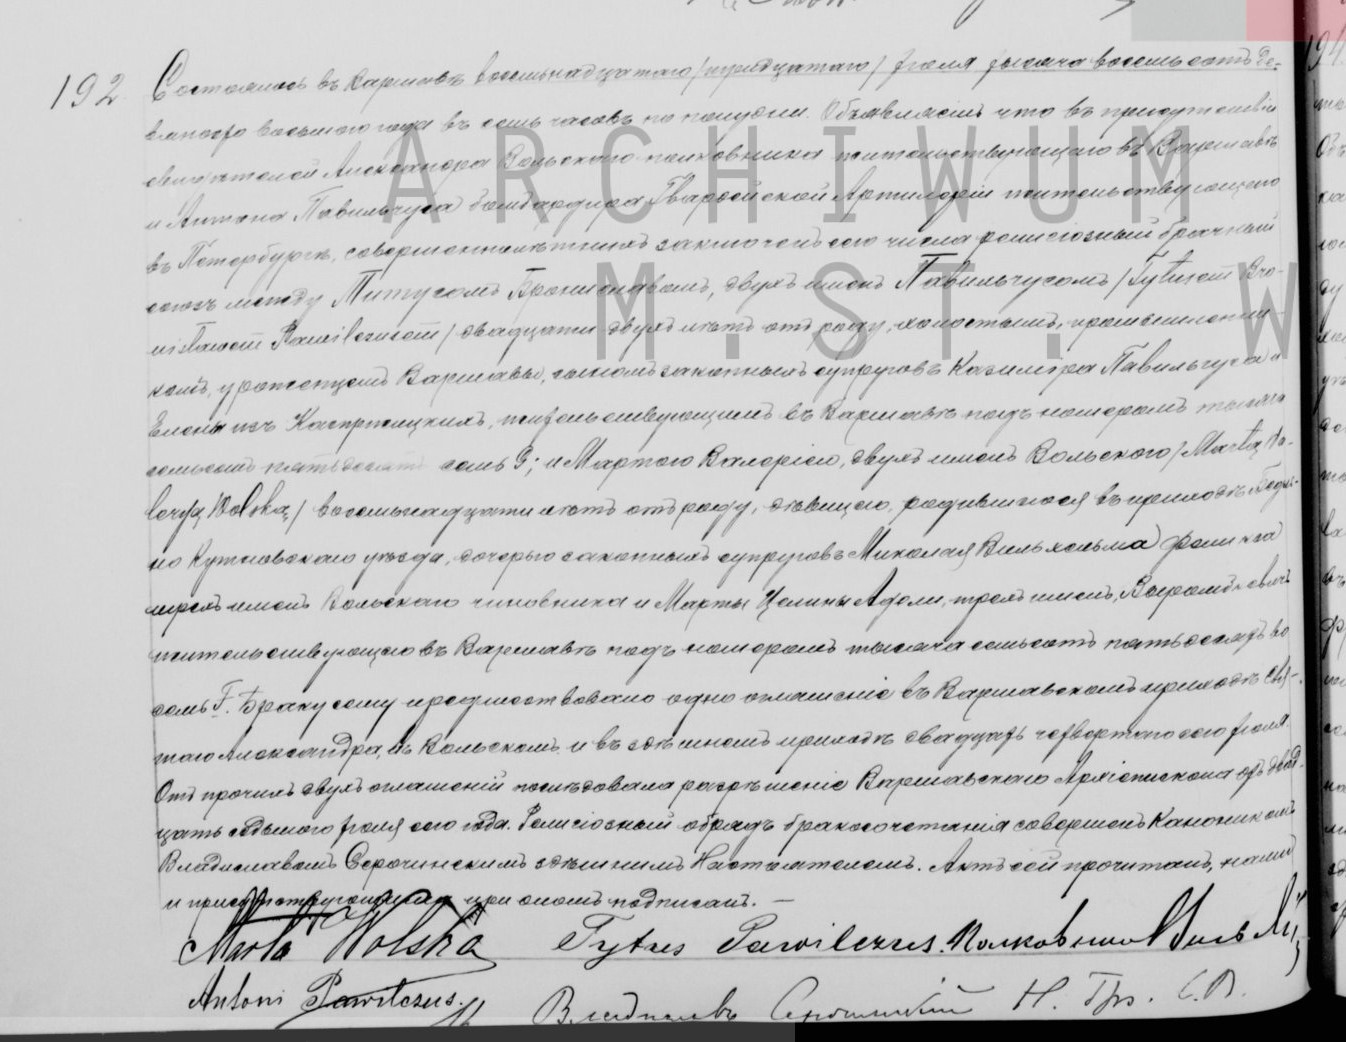 192.
Состоялось въ Варшавѣ восемнадцатаго /тридцатаго/ Іюля тысяча восемьсотъ де-
вяносто восьмого года въ семь часовъ по полудни. Объявляемъ что въ присутствіи
свидѣтелей Александра Вольскаго полковника жительствующаго въ Варшавѣ
и Антона Павильчуса бомбардира Гвардейской Артилеріи жительствующаго
въ Петербургѣ, совершеннолѣтнихъ заключенъ сего числа религіозный брачный
союзъ между Титусомъ Брониславомъ, двухъ именъ Павильчусомъ /Tytusem Bro-
nisławem Pawilczusem/ двадцати двухъ лѣтъ отъ роду, холостымъ,
уроженцемъ Варшавы, сыномъ законныхъ супруговъ Казиміра Павильчуса и
Елены изъ жительствующимъ въ Варшавѣ подъ номеромъ тысяча
семьсотъ пятьдесятъ семь G; и Мартою Валеріею, двухъ именъ Вольскою /Martą Wa-
leryą Wolską/ восемнадцати лѣтъ отъ роду, дѣвицею, родившеюся въ приходѣ
Кутновскаго уѣзда, дочерью законныхъ супруговъ Миколая Вильхельма Феликса
трехъ именъ Вольскаго чиновника и Марты Целины Адели, трехъ именъ,
жительствующею въ Варшавѣ подъ номеромъ тысяча семьсотъ пятьдесятъ во
семь F. Браку сему предшествовало одно оглашеніе въ Варшавскомъ приходѣ Свя-
таго Александра, въ Вольскомъ и въ здѣшнемъ приходѣ двадцать четвертаго сего Іюля
Отъ прочихъ двухъ оглашеній послѣдовало разрѣшеніе Варшавскаго Архіепископа отъ двад-
цать седьмого Іюля сего года. Религіозный обрядъ бракосочетанія совершенъ Каноникомъ
Владиславомъ Сѣрочинскимъ здѣшнимъ Настоятелемъ. Актъ сей прочитанъ, нами
и присутствующими при ономъ подписанъ. —
Marta Wolska Tytus Pawilczus. Полковникъ Вольскій
Antoni Pawilczus.
Владиславъ Н. Пр. С. А.
ARCHIWUM
M. ST. W